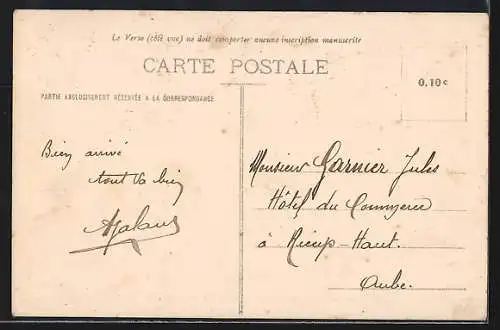 Le Verso (côté vue) ne doit comporter aucune inscription manuscrite
CARTE POSTALE
0.10 c
PARTIE EXCLUSIVEMENT RÉSERVÉE A LA CORRESPONDANCE
Bien arrivé
tout va bien
Monsieur Garnier Jules
Hôtel du Commerce
à Ricey-Haut.
Aube.